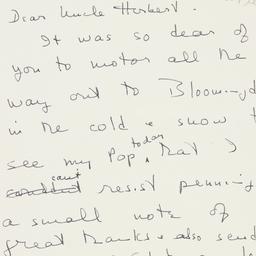 Dear Uncle Herbert.
It was so dear of
you to motor all the
way out to Bloomingd
in the cold & snow t
today
see my Pop, that I
can't
couldn't resist penning
a small note of
great thanks & also send